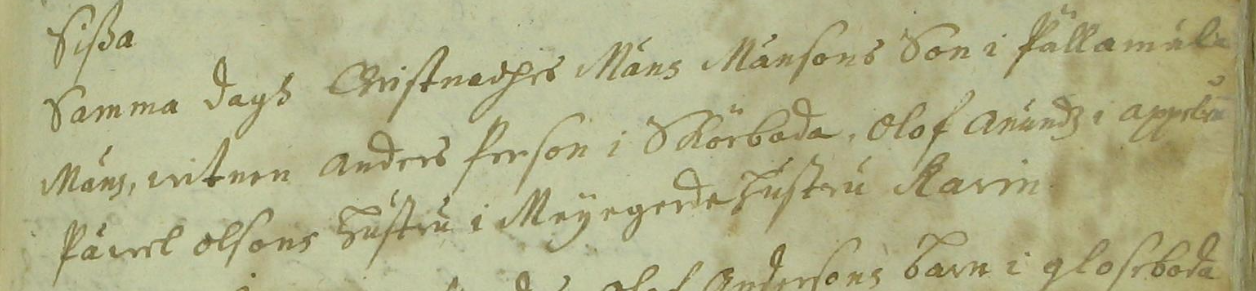 Sißa
Samma dagh Christnadhes Måns Månsons Son i Pållamåla
Måns, witnen Anders Person i Skörboda, Olof Anundz i
Påwel Olsons hustru i Meyegerde hustru Karin
Olof Andersons barn i gloseboda